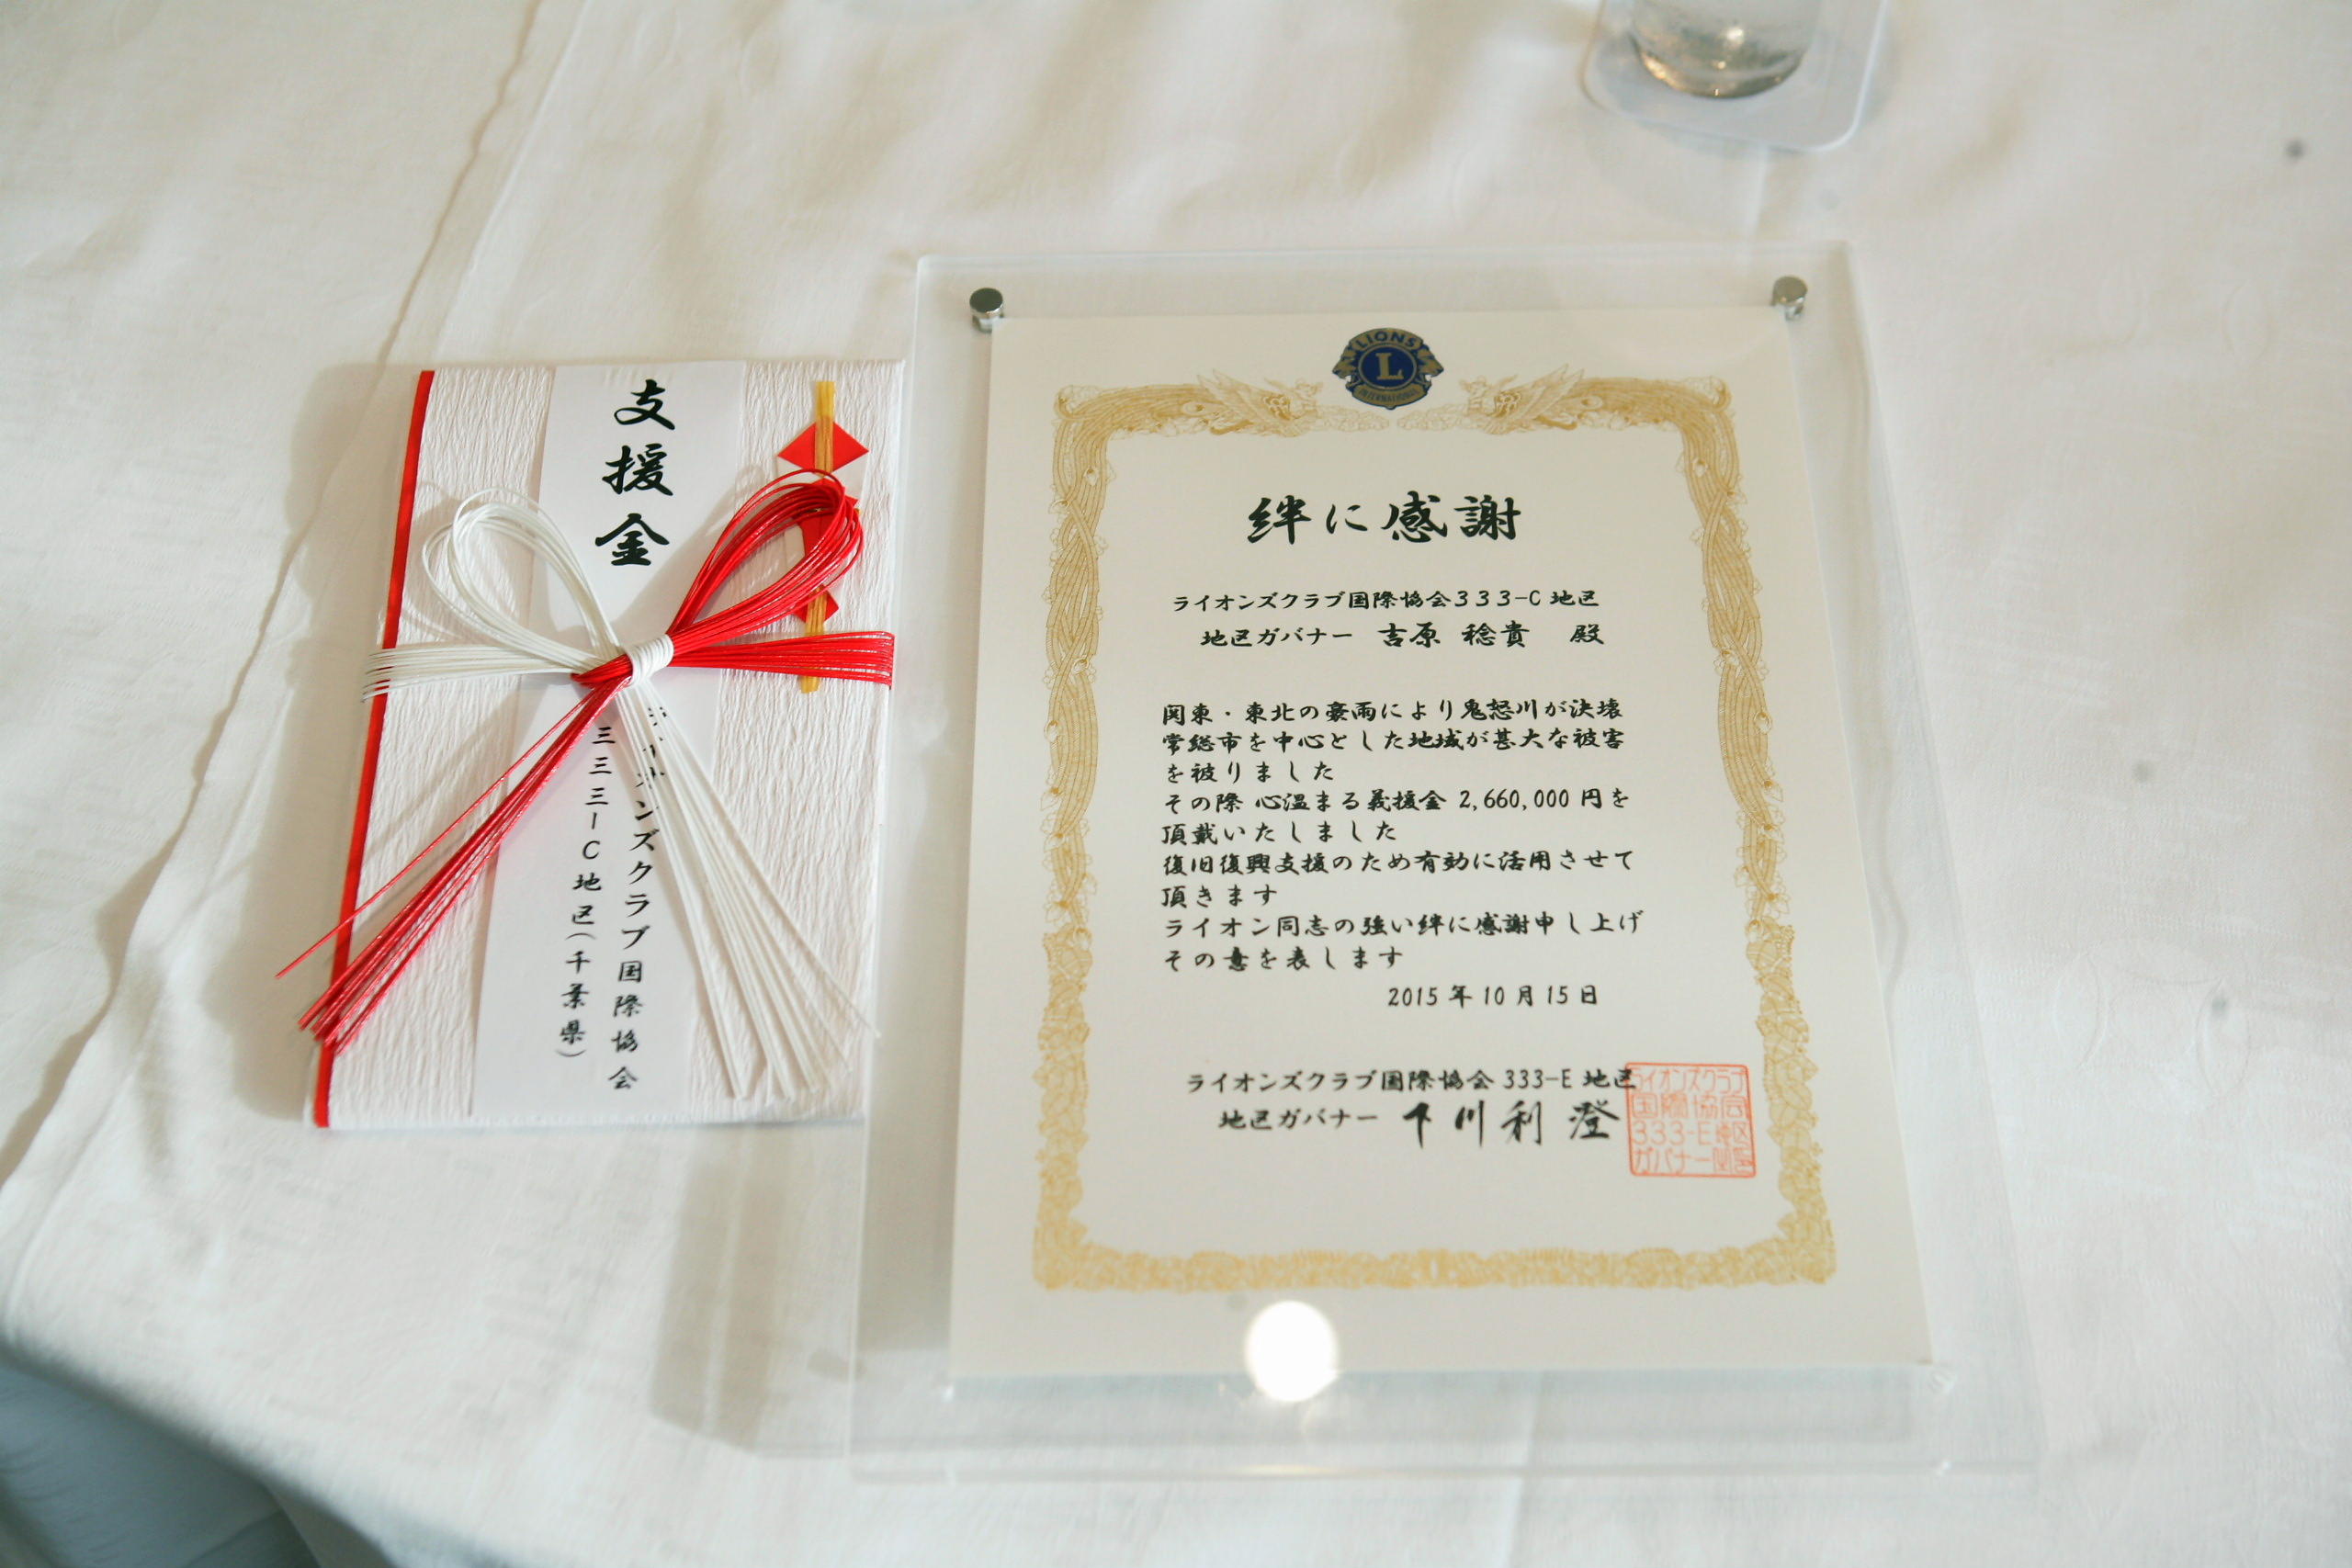 支援金
ライオンズクラブ国際協会
三三三-C地区(千葉県)
LIONS
L
INTERNATIONAL
絆に感謝
ライオンズクラブ国際協会333-C地区
地区ガバナー 吉原 稔貴 殿
関東・東北の豪雨により鬼怒川が決壊
常総市を中心とした地域が甚大な被害
を被りました
その際 心温まる義援金 2,660,000 円を
頂戴いたしました
復旧復興支援のため有効に活用させて
頂きます
ライオン同志の強い絆に感謝申し上げ
その意を表します
2015年10月15日
ライオンズクラブ国際協会 333-E 地区
地区ガバナー 下川利澄
ライオンズクラブ
国際協会
333-E地区
ガバナー